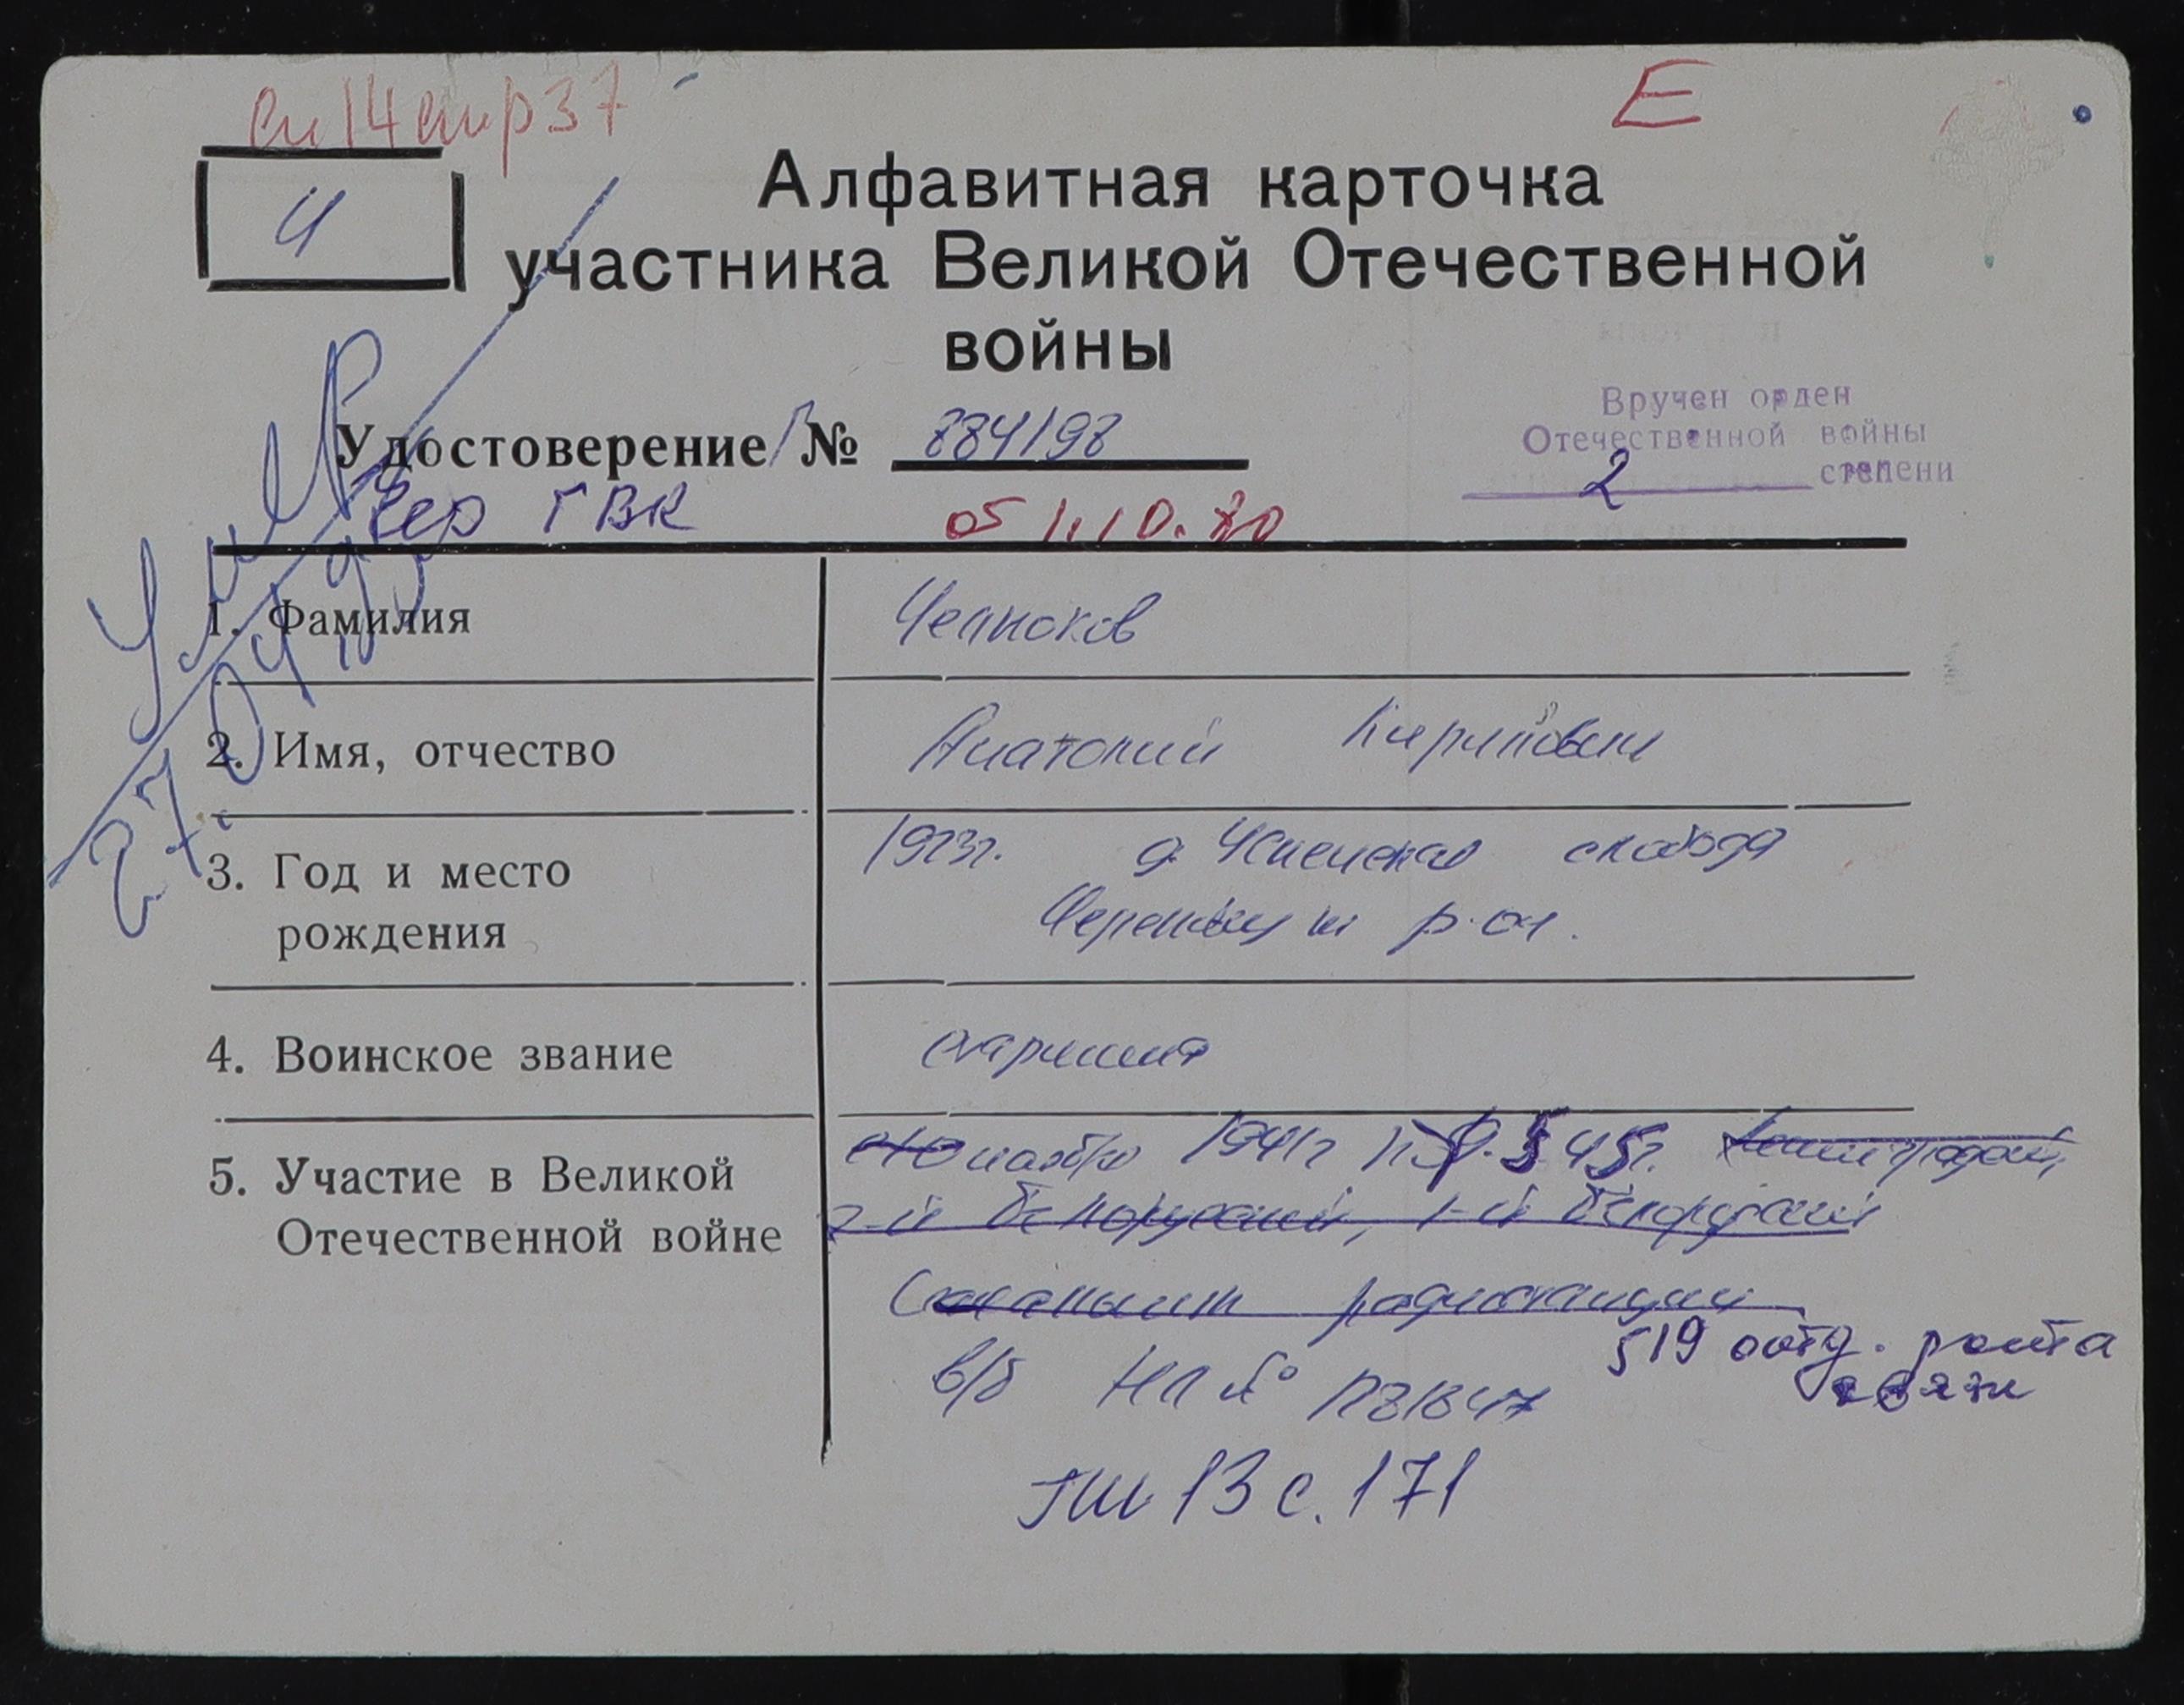 сп 14 стр 37
Е
Ч
Алфавитная карточка
участника Великой Отечественной
войны
Удостоверение № 884198
Вручен орден
Отечественной войны
2 степени
Чер ГВК
05 1.10.80
Умер
27.04.
1. Фамилия
Челноков
2. Имя, отчество
Анатолий Кириллович
3. Год и место
рождения
1923г. д. Успенская слобода
р-он.
4. Воинское звание
старшина
5. Участие в Великой
Отечественной войне
ноября 1941г по 9.5 45г. Ленинградский,
2-й Белорусский, 1-й Белорусский
радиостанции
519 отд. рота
связи
в/б НП № 1281847
ГШ 13 с. 171